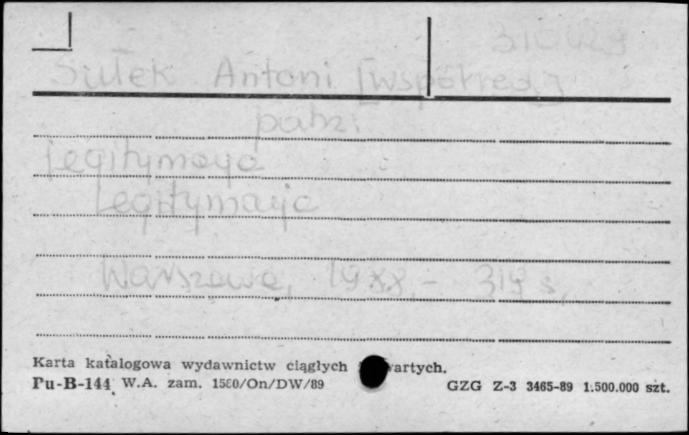 310429
Sułek Antoni [współred.]
patrz:
Legitymacja
Legitymacja
Warszawa, 1988.- 319 s.
Karta katalogowa wydawnictw ciągłych wartych.
Pu-B-144 W.A. zam. 1560/On/DW/89 GZG Z-3 3465-89 1.500.000 szt.